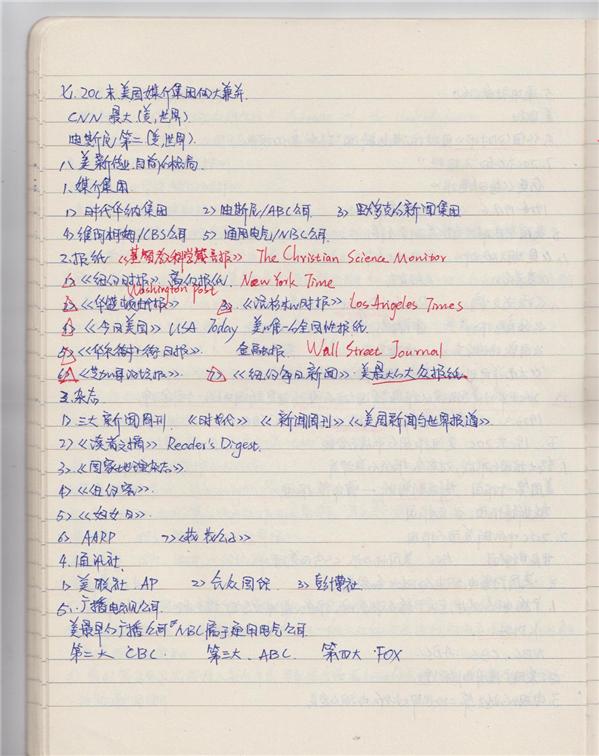 七、20C末美国媒介集团的大兼并.
CNN 最大(美,世界)
迪斯尼 第二(美,世界)
八、美新传业目前的格局
1、媒介集团
1) 时代华纳集团 2) 迪斯尼/ABC公司 3) 默多克的新闻集团
4) 维阿柯姆/CBS公司 5) 通用电气/NBC公司.
2.报纸 《基督教科学箴言报》 The Christian Science Monitor
1)《纽约时报》高级报纸. New York Time
Washington post
2)《华盛顿邮报》 3)《洛杉矶时报》 Los Angeles Times
4)《今日美国》 USA Today 美唯一的全国性报纸
5)《华尔街日报》 金融报. Wall Street Journal
6)《芝加哥论坛报》 7)《纽约每日新闻》·美最大的大众报纸
3.杂志
1) 三大新闻周刊.《时代》《新闻周刊》《美国新闻与世界报道》.
2)《读者文摘》 Reader's Digest.
3)《国家地理杂志》
4)《纽约客》.
5)《妇女日》.
6) AARP 7)
4.通讯社.
1) 美联社. AP 2) 合众国际 3) 彭博社
5、广播电视公司.
美最早的广播公司 NBC 属于通用电气公司.
第二大 CBC. 第三大. ABC. 第四大·FOX